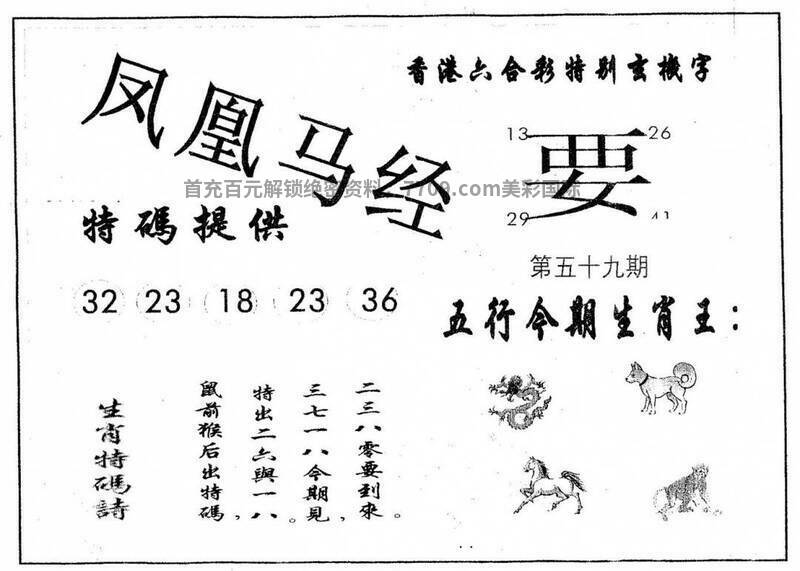 凤凰马经
香港六合彩特别玄機字
13
26
要
29
41
首充百元解锁绝密资料：7709.com美彩国际
特碼提供
第五十九期
32 23 18 23 36
五行今期生肖王：
生肖特碼詩
鼠前猴后出特碼，
特出二六與一八。
三七一八今期見，
二三八零要到來。